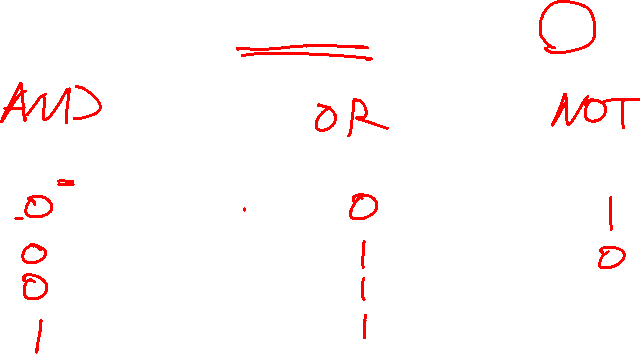 AND OR NOT
0 0 1
0 1 0
0 1
1 1